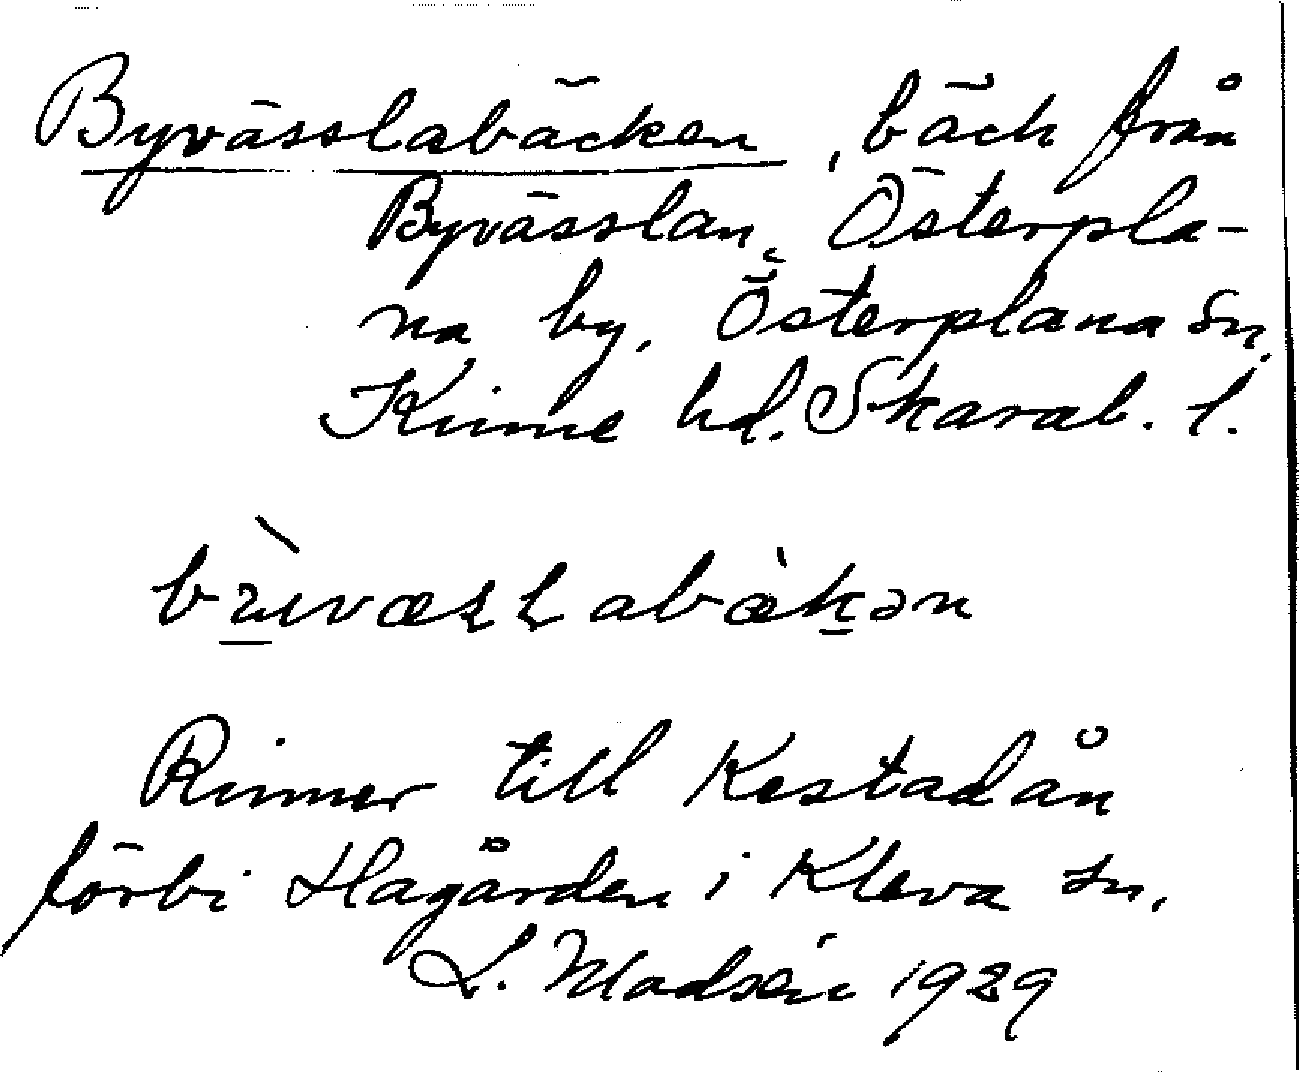 Byvässlabäcken, bäck från
Byvässlan, Österpla-
na by, Österplana sn,
Kinne hd. Skarab. l.
Rinner till Kestadån
förbi Hagården i Kleva sn,
L. Modsén 1929